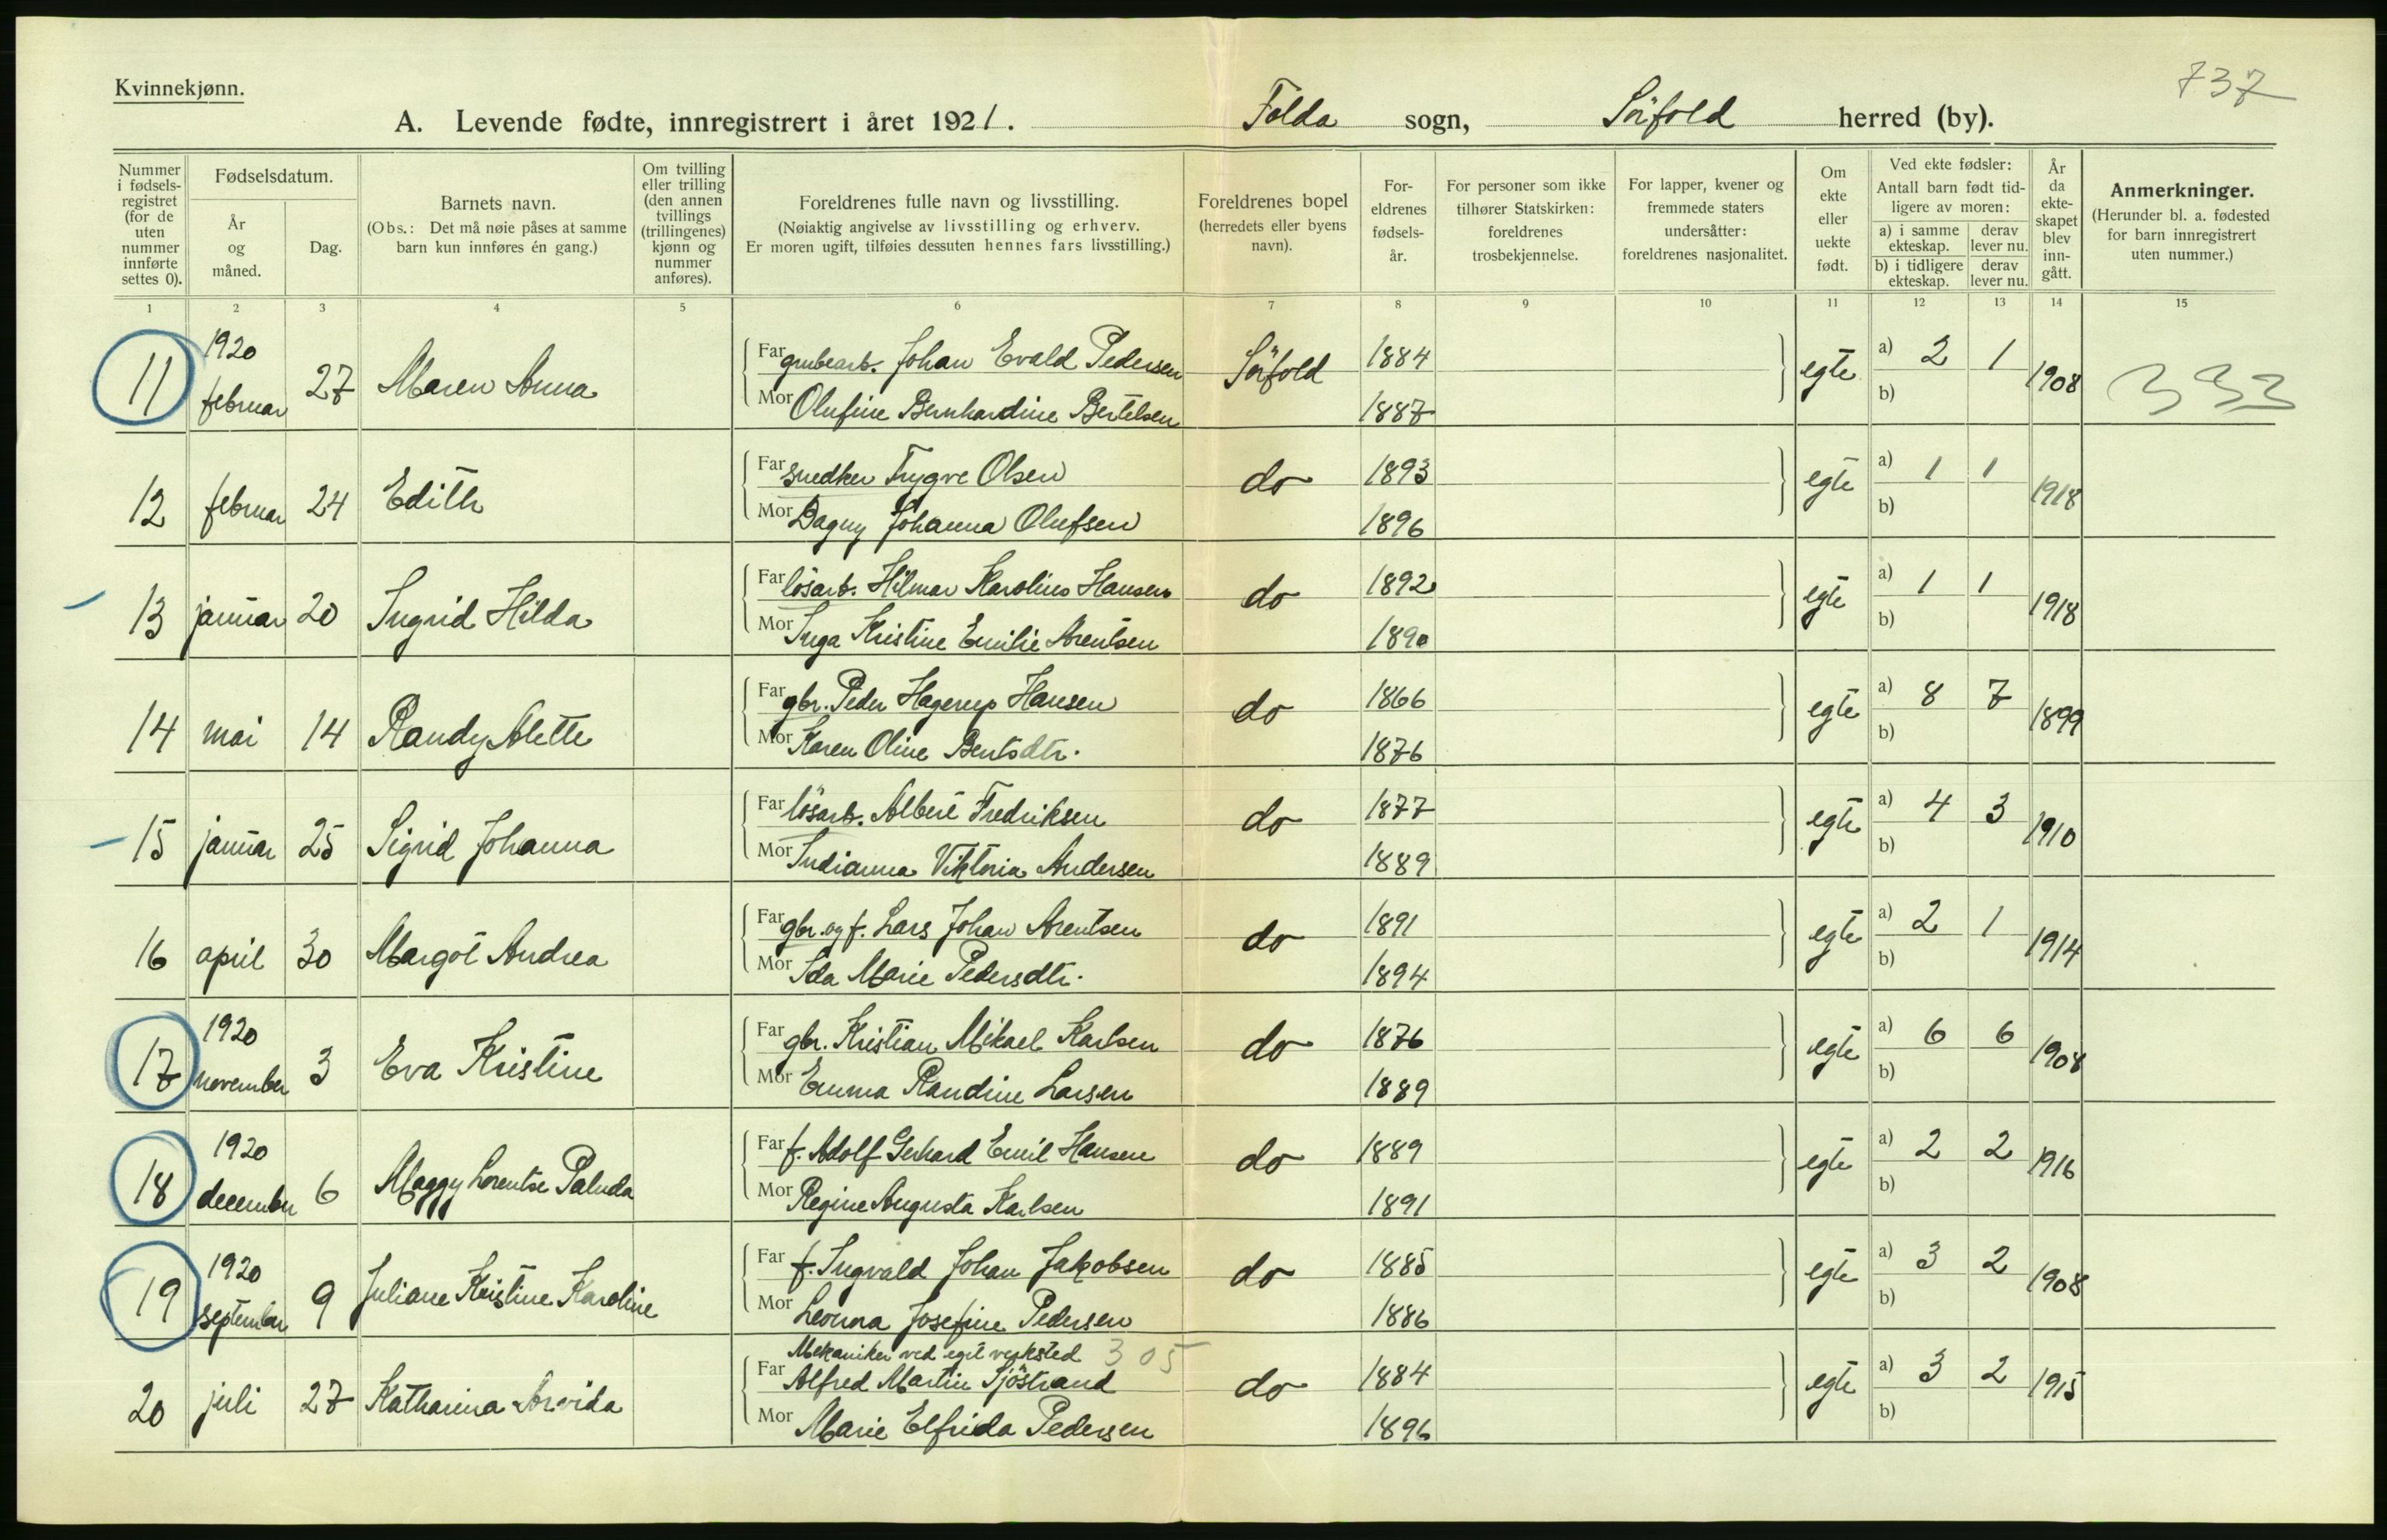 Kvinnekjønn.
737
A. Levende fødte, innregistrert i året 1921. Folda sogn, Sörfold herred (by).
Nummer i fødselsregistret (for de uten nummer innførte settes 0).
Fødselsdatum.
År og måned.
Dag.
Barnets navn.
(Obs.: Det må nøie påses at samme barn kun innføres én gang.)
Om tvilling eller trilling (den annen tvillings (trillingenes) kjønn og nummer anføres).
Foreldrenes fulle navn og livsstilling.
(Nøiaktig angivelse av livsstilling og erhverv.
Er moren ugift, tilføies dessuten hennes fars livsstilling.)
Foreldrenes bopel
(herredets eller byens navn).
Foreldrenes fødselsår.
For personer som ikke tilhører Statskirken: foreldrenes trosbekjennelse.
For lapper, kvener og fremmede staters undersåtter: foreldrenes nasjonalitet.
Om ekte eller uekte født.
Ved ekte fødsler:
Antall barn født tidligere av moren:
a) i samme ekteskap.
derav lever nu.
b) i tidligere ekteskap.
derav lever nu.
År da ekteskapet blev inngått.
Anmerkninger.
(Herunder bl. a. fødested for barn innregistrert uten nummer.)
1 2 3 4 5 6 7 8 9 10 11 12 13 14 15
11 1920 februar 27 Maren Anna Far grubearb. Johan Evald Pedersen Sörfold 1884 egte a) 2 1 1908 333
Mor Olufine Bernhardine Bertelsen 1887 b)
12 februar 24 Edith Far snedker Trygve Olsen do 1893 egte a) 1 1 1918
Mor Dagny Johanna Olufsen 1896 b)
13 januar 20 Ingrid Hilda Far lösarb. Hilmar Karolius Hansen do 1892 egte a) 1 1 1918
Mor Inga Kristine Emilie Arentsen 1890 b)
14 mai 14 Randy Alette Far gbr. Peder Hagerup Hansen do 1866 egte a) 8 7 1899
Mor Karen Oline Bentsdtr. 1876 b)
15 januar 25 Sigrid Johanna Far lösarb. Albert Fredriksen do 1877 egte a) 4 3 1910
Mor Indianna Viktoria Andersen 1889 b)
16 april 30 Margot Andrea Far gbr. og f. Lars Johan Arentsen do 1891 egte a) 2 1 1914
Mor Ida Marie Pedersdtr. 1894 b)
17 1920 november 3 Eva Kristine Far gbr. Kristian Mikael Karlsen do 1876 egte a) 6 6 1908
Mor Emma Randine Larsen 1889 b)
18 1920 december 6 Maggy Lorentse Paluda Far f. Adolf Gerhard Emil Hansen do 1889 egte a) 2 2 1916
Mor Regine Augusta Karlsen 1891 b)
19 1920 september 9 Juliane Kristine Karoline Far f. Ingvald Johan Jakobsen do 1885 egte a) 3 2 1908
Mor Leonna Josefine Pedersen 1886 b)
Mekaniker ved eget verksted 305
20 juli 27 Katharina Arvida Far Alfred Martin Sjöstrand do 1884 egte a) 3 2 1915
Mor Marie Elfrida Pedersen 1896 b)